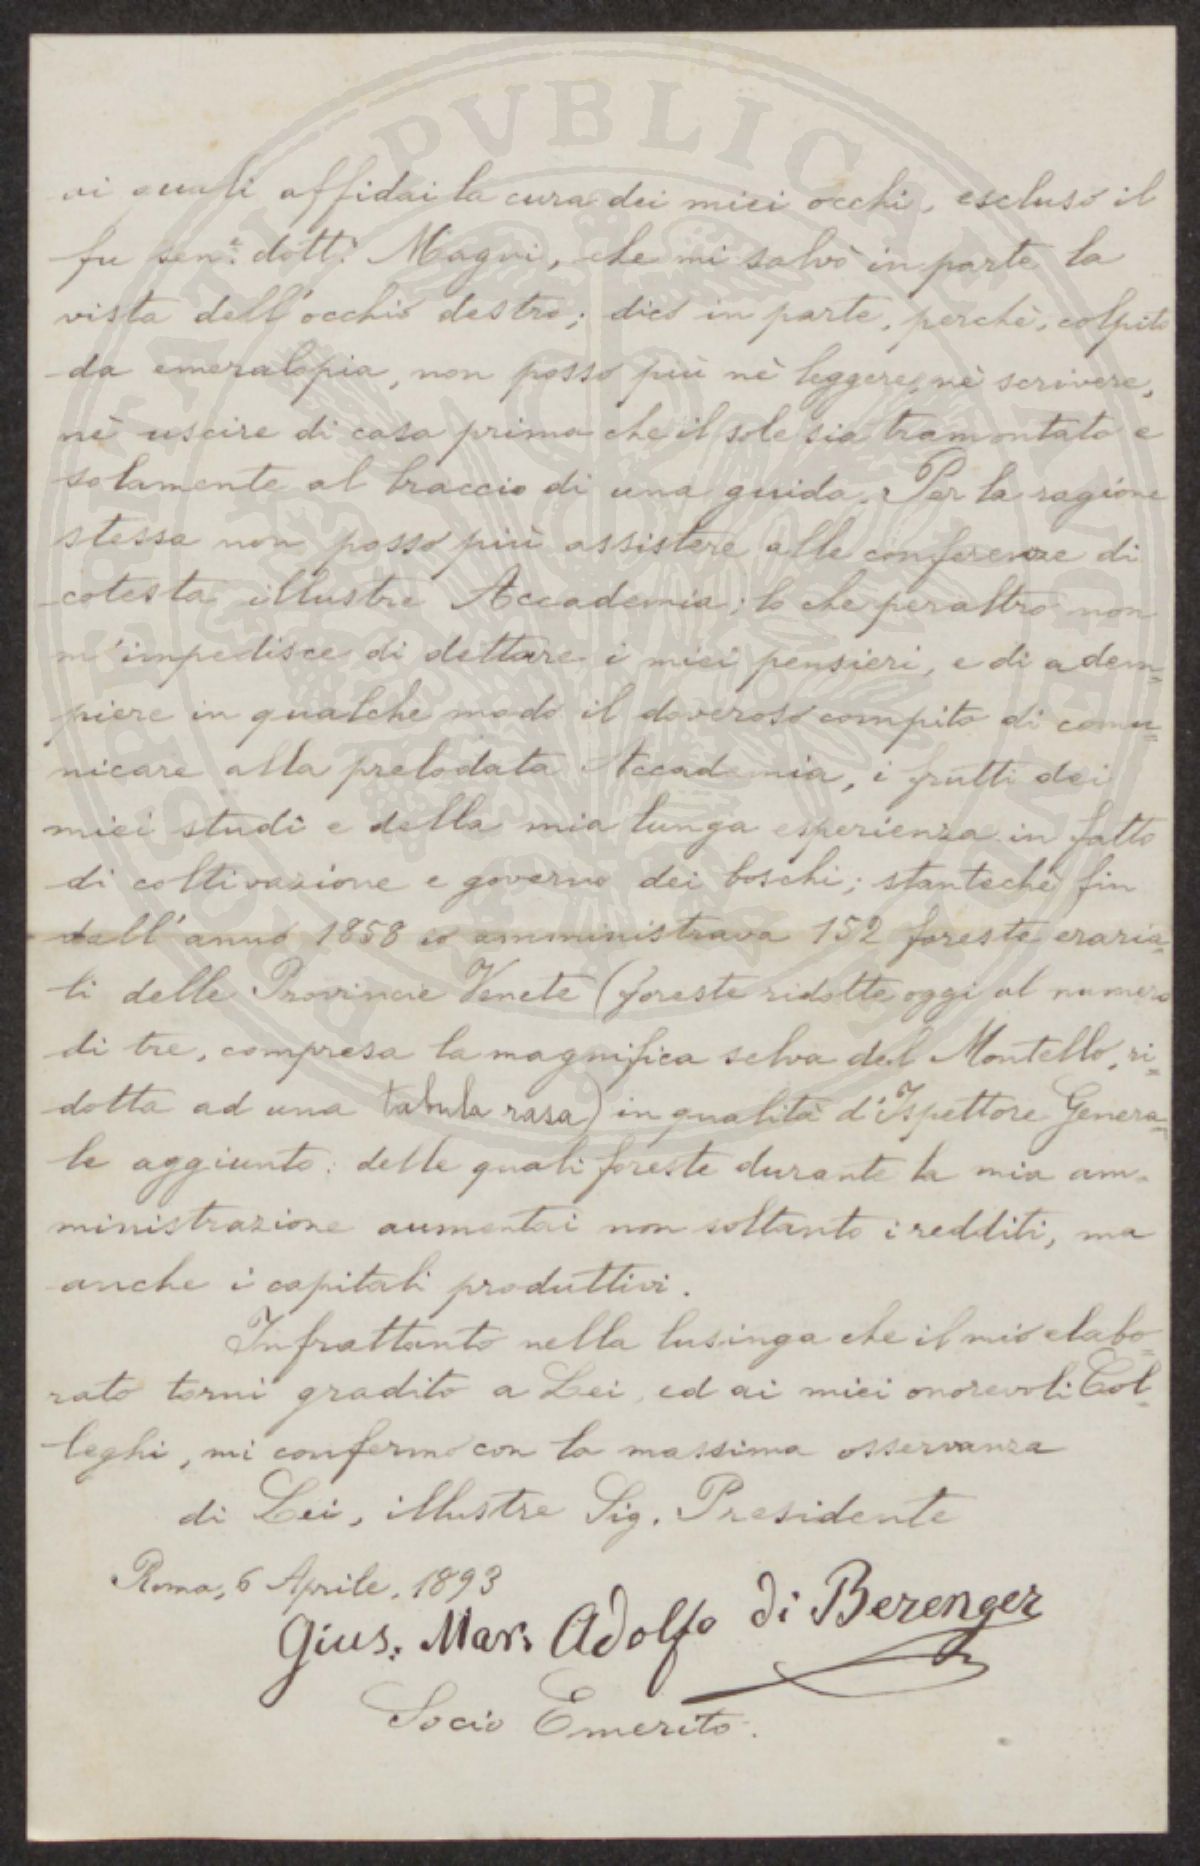 ai quali affidai la cura dei miei occhi, escluso il
fu sen.e dott.r Magni, che mi salvò in parte la
vista dell'occhio destro; dico in parte, perchè, colpito
da emeralopia, non posso più nè leggere, nè scrivere,
nè uscire di casa prima che il sole sia tramontato e
solamente al braccio di una guida. Per la ragione
stessa non posso più assistere alle conferenze di
cotesta illustre Accademia; lo che peraltro non
m'impedisce di dettare i miei pensieri, e di adem=
piere in qualche modo il doveroso compito di comu=
nicare alla prelodata Accademia, i frutti dei
miei studî e della mia lunga esperienza in fatto
di coltivazione e governo dei boschi; stantechè fin
dall'anno 1858 io amministrava 152 foreste eraria=
li delle Provincie Venete (foreste ridotte oggi al numero
di tre, compresa la magnifica selva del Montello, ri=
dotta ad una tabula rasa) in qualità d'Ispettore Genera=
le aggiunto: delle quali foreste durante la mia am-
ministrazione aumentai non soltanto i redditi, ma
anche i capitali produttivi.
Infrattanto nella lusinga che il mio elabo=
rato torni gradito a Lei, ed ai miei onorevoli Col=
leghi, mi confermo con la massima osservanza
di Lei, illustre Sig. Presidente
Roma, 6 Aprile, 1893
Gius. Mar. Adolfo di Berenger
Socio Emerito.